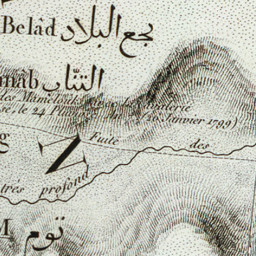 Belâd نجع البلاد
nnâb التنّاب
des Mamelouks Galerie
se, le 24 Pl 13 Janvier 1799)
g Fuite des
N
très profond
M توم